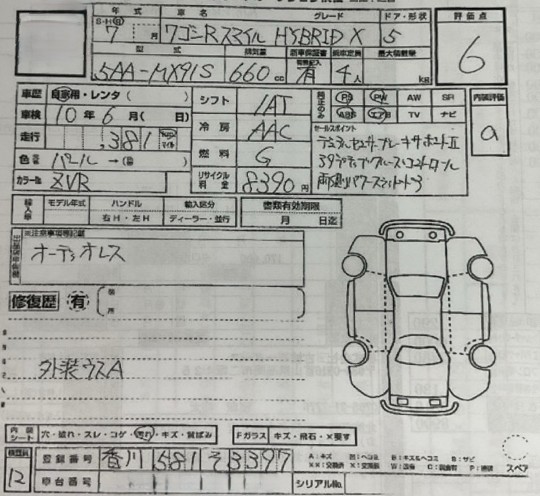 年式 車名 グレード ドア・形状 評価点
S・H・R 7 月 ワゴンRスマイル HYBRID X 5 6
型式 排気量 新車保証書 乗車定員 最大積載量
5AA-MX91S 660 cc 有 4人 kg
車歴 自家用・レンタ( ) シフト IAT 純正のみ PS PW AW SR 内装評価
車検 10年6月( 日) ABS エアB TV ナビ a
走行 381 冷房 AAC セールスポイント
デュアルセンサーブレーキサポートII
色 パール→( ) 燃料 G
カラー№ ZVR リサイクル料金 8390円 両側パワースライドドア
輸入車 モデル年式 ハンドル 輸入区分 書類有効期限
右H・左H ディーラー・並行 月 日迄
※注意事項等記載
オーディオレス
修復歴 有 箇所
外装ウスA
内装シート 穴・破れ・スレ・コゲ・汚れ・キズ・黄ばみ Fガラス キズ・飛石・X要す
検査員 12 登録番号 香川 581 そ 3397
車台番号 シリアル№ スペア